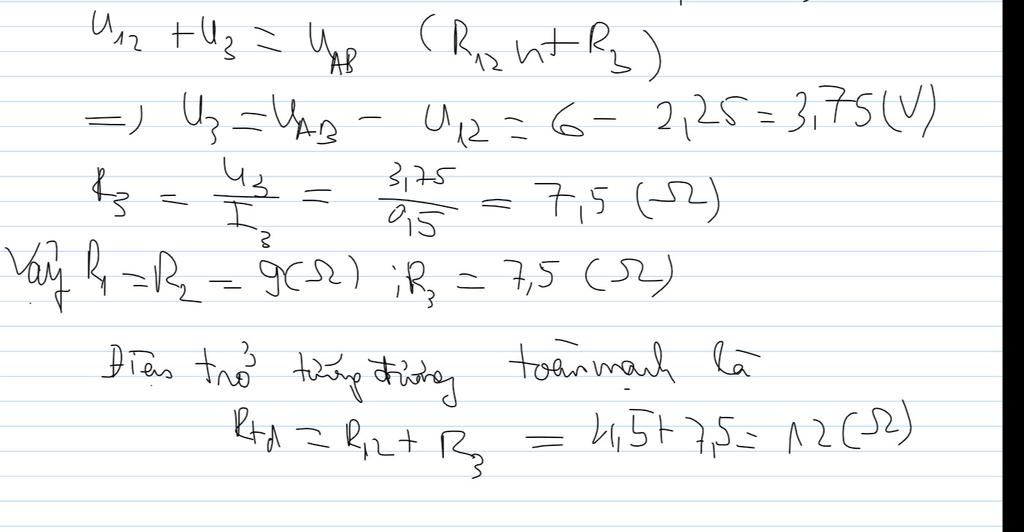 U12 + U3 = UAB (R12 nt R3)
=) U3 = UAB - U12 = 6 - 2,25 = 3,75 (V)
R3 = U3/I3 = 3,75/0,5 = 7,5 (Ω)
Vậy R1 = R2 = 9(Ω) ; R3 = 7,5 (Ω)
Điện trở tương đương toàn mạch là
Rtđ = R12 + R3 = 4,5 + 7,5 = 12 (Ω)